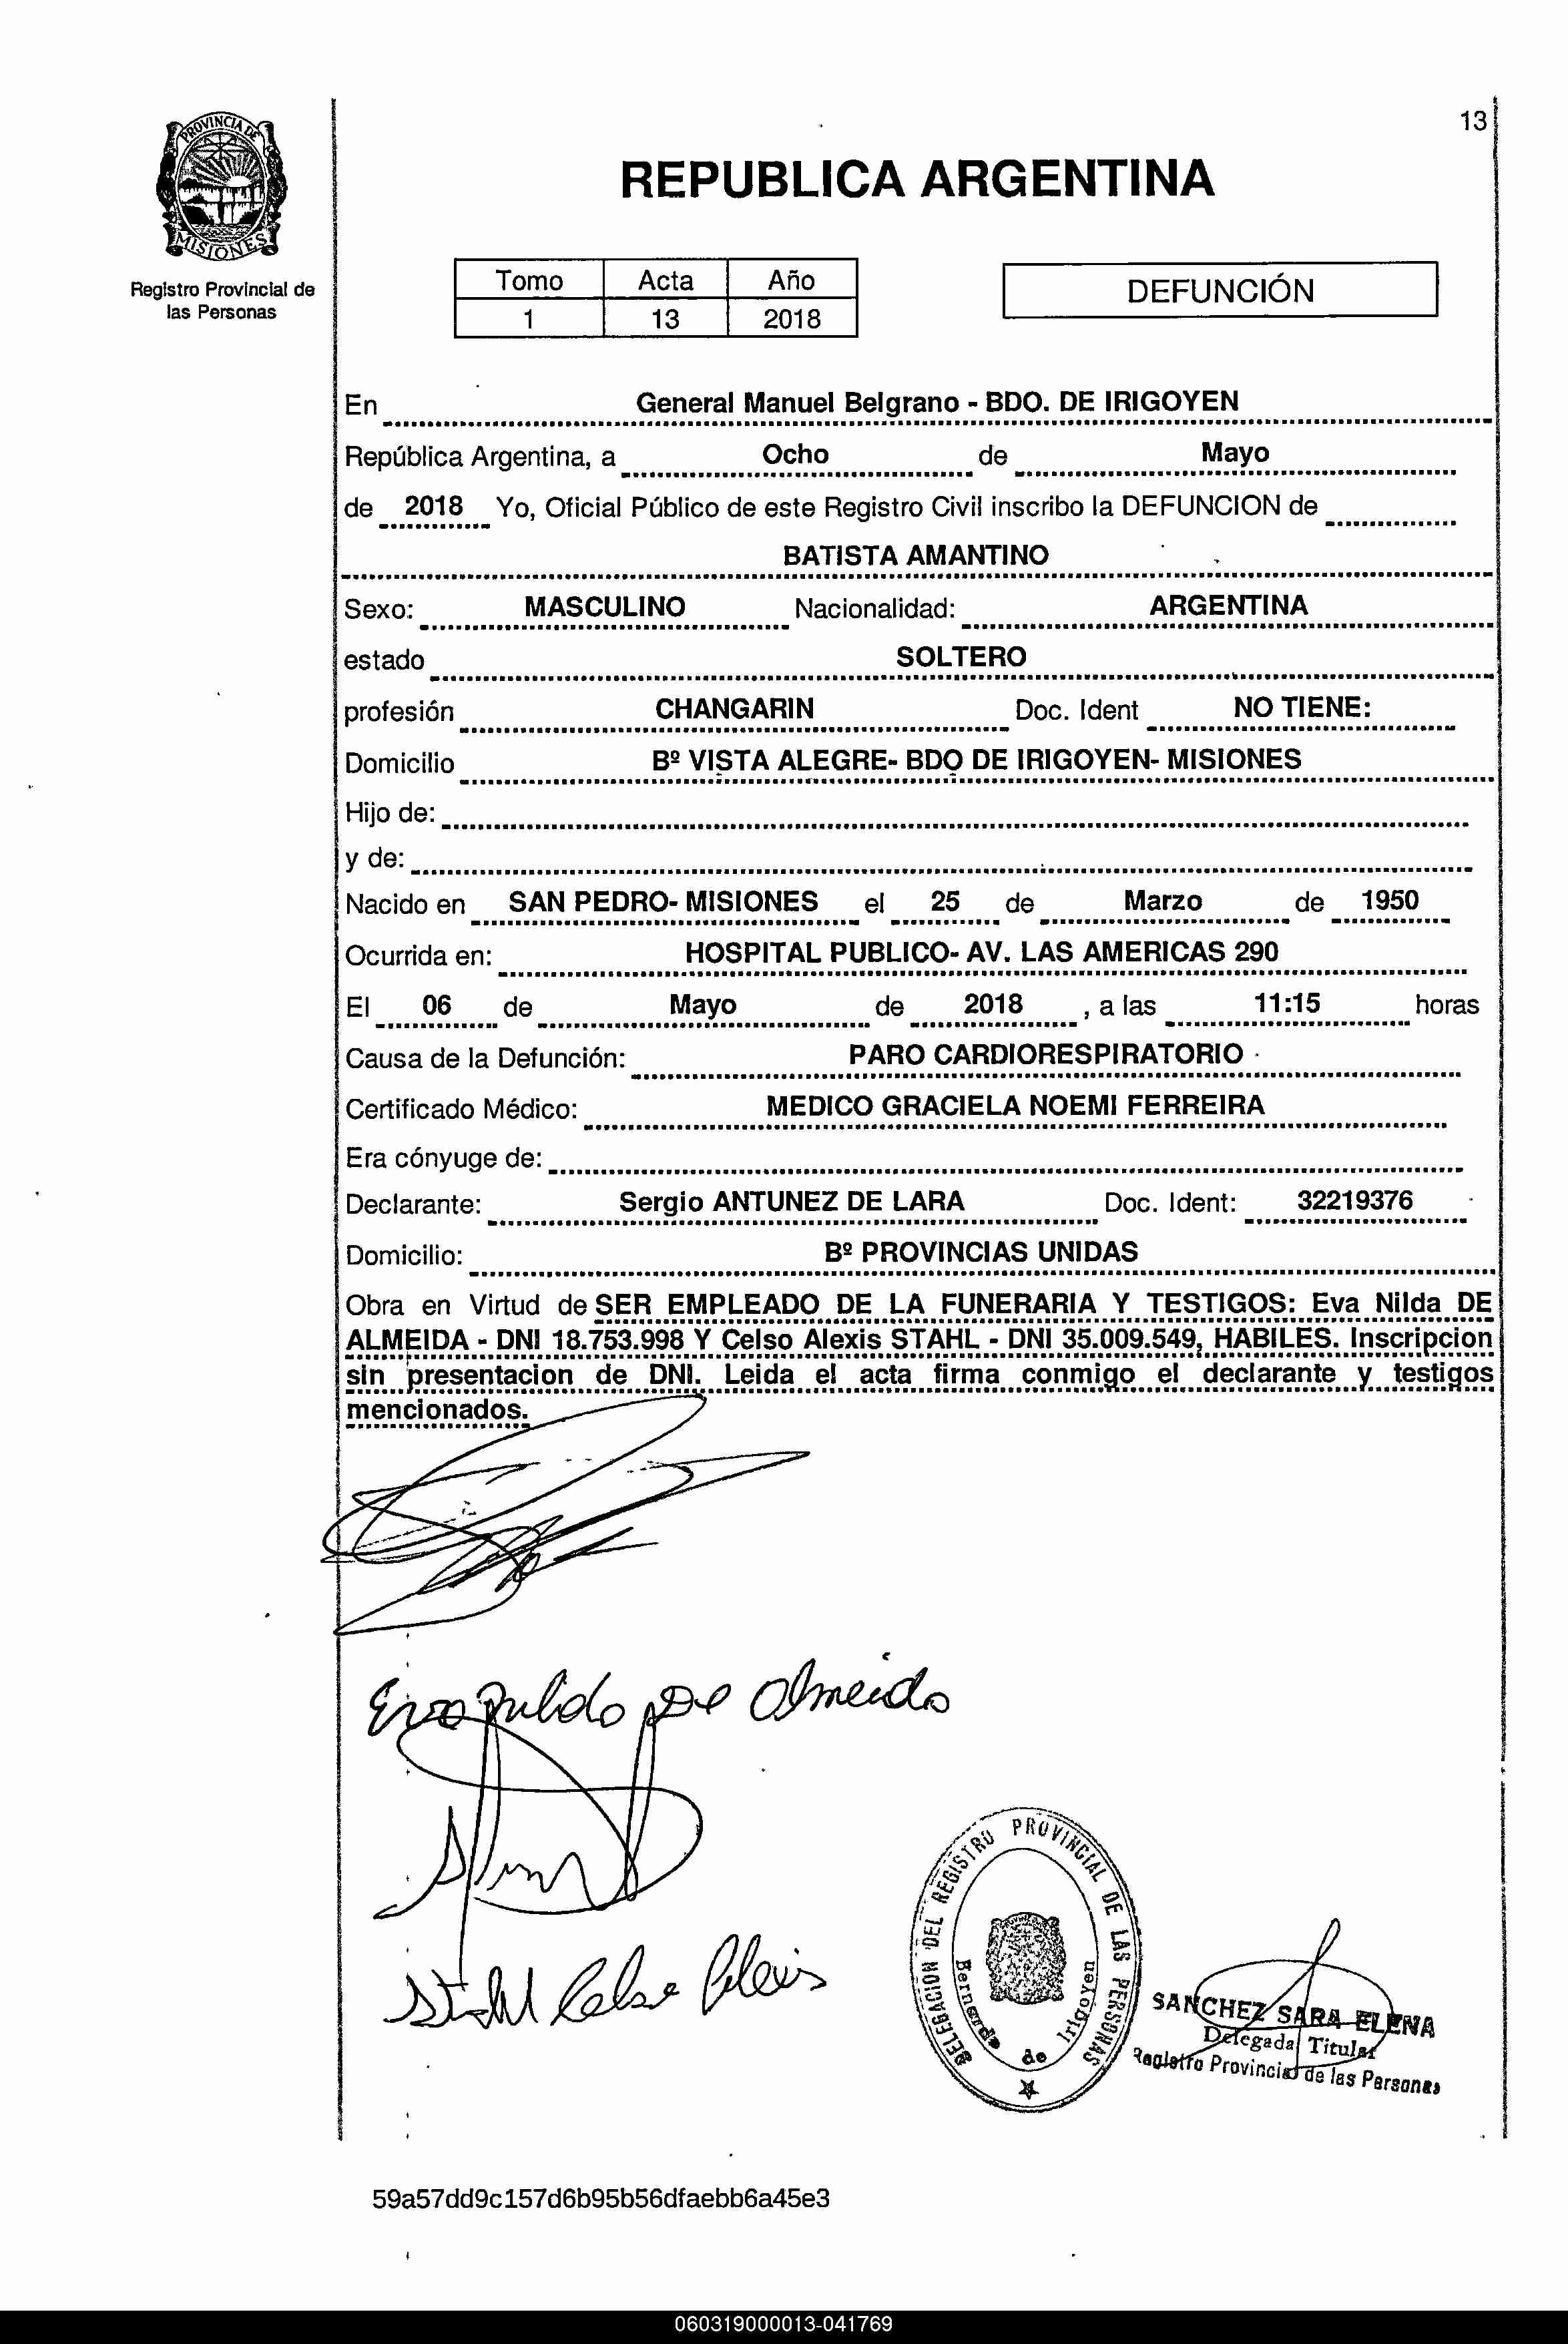 13
PROVINCIA DE
MISIONES
Registro Provincial de
las Personas
REPUBLICA ARGENTINA
Tomo Acta Año
1 13 2018
DEFUNCIÓN
En General Manuel Belgrano - BDO. DE IRIGOYEN
República Argentina, a Ocho de Mayo
de 2018 Yo, Oficial Público de este Registro Civil inscribo la DEFUNCION de
BATISTA AMANTINO
Sexo: MASCULINO Nacionalidad: ARGENTINA
estado SOLTERO
profesión CHANGARIN Doc. Ident NO TIENE:
Domicilio Bº VISTA ALEGRE- BDO DE IRIGOYEN- MISIONES
Hijo de:
y de:
Nacido en SAN PEDRO- MISIONES el 25 de Marzo de 1950
Ocurrida en: HOSPITAL PUBLICO- AV. LAS AMERICAS 290
El 06 de Mayo de 2018 , a las 11:15 horas
Causa de la Defunción: PARO CARDIORESPIRATORIO
Certificado Médico: MEDICO GRACIELA NOEMI FERREIRA
Era cónyuge de:
Declarante: Sergio ANTUNEZ DE LARA Doc. Ident: 32219376
Domicilio: Bº PROVINCIAS UNIDAS
Obra en Virtud de SER EMPLEADO DE LA FUNERARIA Y TESTIGOS: Eva Nilda DE
ALMEIDA - DNI 18.753.998 Y Celso Alexis STAHL - DNI 35.009.549, HABILES. Inscripcion
sin presentacion de DNI. Leida el acta firma conmigo el declarante y testigos
mencionados.
Eva Nilda De Almeida
Stahl Celso Alexis
DELEGACION DEL REGISTRO PROVINCIAL DE LAS PERSONAS
Bernardo de Irigoyen
SANCHEZ SARA ELENA
Delegada Titular
Registro Provincial de las Personas
59a57dd9c157d6b95b56dfaebb6a45e3
060319000013-041769